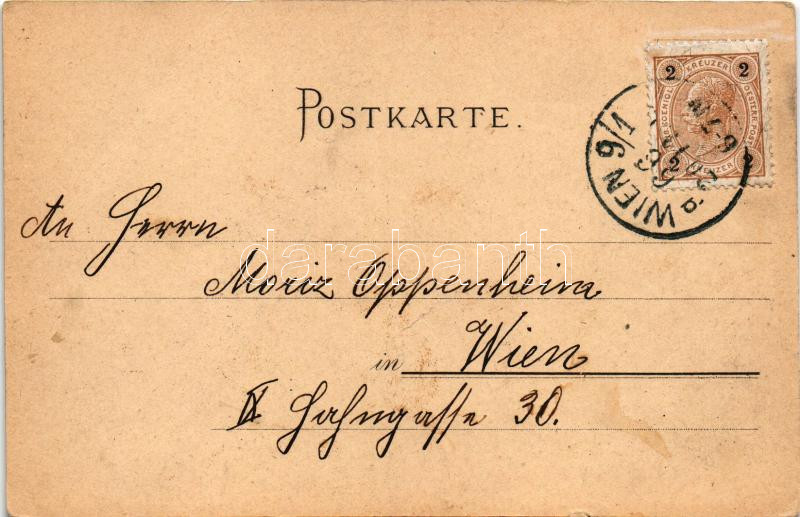 POSTKARTE.
2 KREUZER 2
2 KREUZER 2
WIEN 9/1
An Herrn
Moriz Oppenheim
in Wien
IX Hahngasse 30.
darabanth